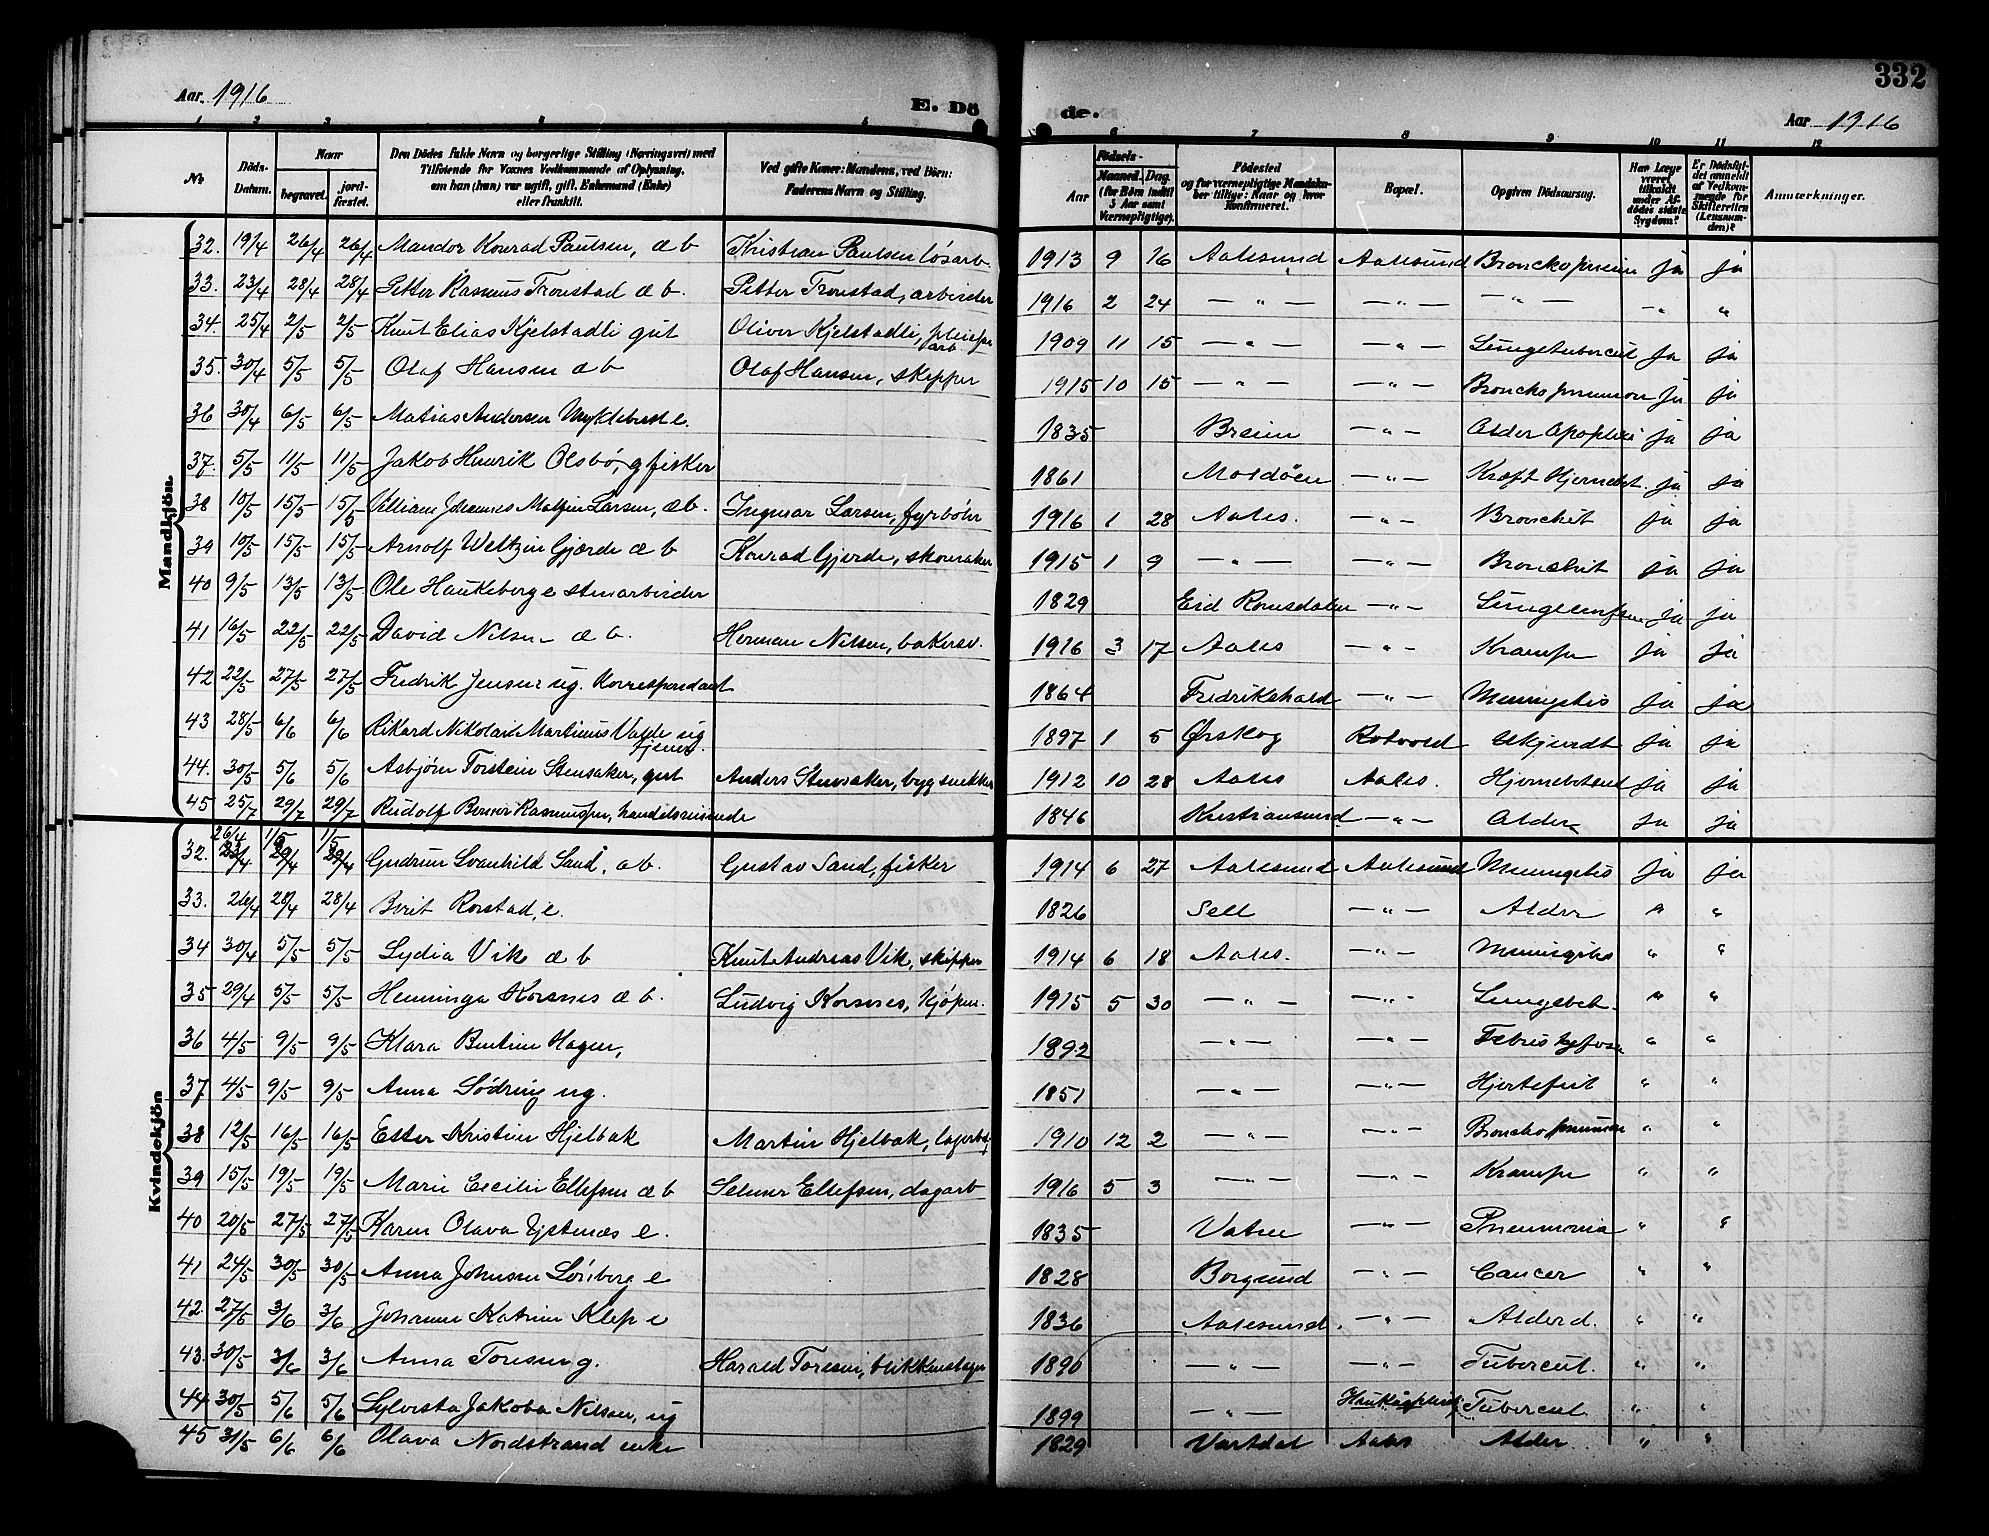 332
Aar. 1916
E. Dö
de.
Aar 1916
1 2 3 4 5 6 7 8 9 10 11 12
№
Döds-Datum.
Naar
begravet.
jord-fæstet.
Den Dödes fulde Navn og borgerlige Stilling (Næringsvei) med
Tilföiende for Voxnes Vedkommende af Oplysning,
om han (hun) var ugift, gift, Enkemand (Enke)
eller fraskilt.
Ved gifte Koner: Mandens, ved Börn:
Faderens Navn og Stilling.
Födsels-
Aar
Maaned. Dag.
(for Börn indtil
5 Aar samt
Værnepligtige).
Födested
og for værnepligtige Mandska-
ber tillige: Naar og hvor
konfirmeret.
Bopæl.
Opgiven Dödsaarsag.
Har Læge
været
tilkaldt
under Af-
dödes sidste
Sygdom?
Er Dödsfal-
det anmeldt
af Vedkom-
mende for
Skifteretten
(Lensman-
den)?
Anmærkninger.
Mandkjön
32. 19/4 26/4 26/4 Mandor Konrad Paulsen, æ b Kristian Paulsen løsarb. 1913 9 16 Aalesund Aalesund Ja ja
33. 23/4 28/4 28/4 Petter Rasmus Tronstad æ b. Petter Tronstad, arbeider 1916 2 24 — " — — " — — " — " "
34. 25/4 2/5 2/5 Knut Elias Kjelstadli gut Oliver Kjelstadli, arb. 1909 11 15 — " — — " — Lungetubercul Ja ja
35. 30/4 5/5 5/5 Olaf Hansen æ b Olaf Hansen, skipper 1915 10 15 — " — — " — Ja ja
36 30/4 6/5 6/5 Matias Andersen Myklebust e. 1835 — " — Alder ja ja
37. 5/5 11/5 11/5 Jakob Henrik Olsbø, g fisker 1861 Moldöen — " — Kræft ja ja
38 10/5 15/5 15/5 Johannes Larsen, æ b. Ingmar Larsen, fyrbøter 1916 1 28 Aales. — " — Bronchit ja ja
39 10/5 15/5 15/5 Arnolf Weltzin Gjærde æ b Konrad Gjerde, skomaker 1915 1 9 — " — — " — Bronchit ja ja
40 9/5 13/5 13/5 Ole Haukeberg e stenarbeider 1829 Eid Romsdalen — " — ja ja
41 16/5 22/5 22/5 David Nilsen æ b. Herman Nilsen, bakersv. 1916 3 17 Aales — " — Krampe ja ja
42 22/5 27/5 27/5 Fredrik Jensen ug. Korrespondent 1864 Fredrikshald — " — Meningitis ja ja
43 28/5 6/6 6/6 Rikard Nikolai Martinus Valde ug 1897 1 5 Ørskog Rotvold ja ja
44. 30/5 5/6 5/6 Asbjørn Torstein Stensaker, gut Anders Stensaker, bygsnekker 1912 10 28 Aales Aales. ja ja
45 25/7 29/7 29/7 Rudolf Rasmussen, handelsreisende 1846 Kristiansund — " — Alder ja ja
Kvindekjön
32. 26/4 1/5 1/5 Gudrun Svanhild Sand, æ b. Gustav Sand, fisker 1914 6 27 Aalesund Aalesund Meningitis ja ja
33. 26/4 28/4 28/4 Berit Rorstad, e. 1826 Sell — " — Alder " "
34 30/4 5/5 5/5 Lydia Vik æ b Knut Andreas Vik, skipper 1914 6 18 Aales. — " — Meningitis " "
35 29/4 5/5 5/5 Henninga Korsnes æ b. Ludvig Korsnes, kjöpm. 1915 5 30 — " — — " — Lungebet. " "
36 4/5 9/5 9/5 Klara Bentine Hagen, 1892 — " — — " — Febris " "
37 4/5 9/5 9/5 Anna Lødring ug. 1851 — " — — " — Hjertefeil " "
38 12/5 16/5 16/5 Ester Kristine Hjelbak Martin Hjelbak, 1910 12 2 — " — — " — " "
39 15/5 19/5 19/5 Marie Cecilie Ellefsen æ b Selmer Ellefsen, dagarb 1916 5 3 — " — — " — Krampe " "
40 20/5 27/5 27/5 Karen Olava e. 1835 Vatne — " — Pneumonia " "
41 24/5 30/5 30/5 Anna Johnsen e 1828 Borgund — " — Cancer " "
42. 27/5 3/6 3/6 Johanne Katrine Klep e 1836 Aalesund. — " — Alder d. " "
43. 30/5 3/6 3/6 Anna Toresen g. Harald Toresen, 1890 — " — — " — Tubercul. " "
44 30/5 5/6 5/6 Sylvesta Jakoba Nilsen, ug 1899 — " — Tubercul. " "
45 31/5 6/6 6/6 Olava Nordstrand enke 1829 Vartdal Aales Alder " "